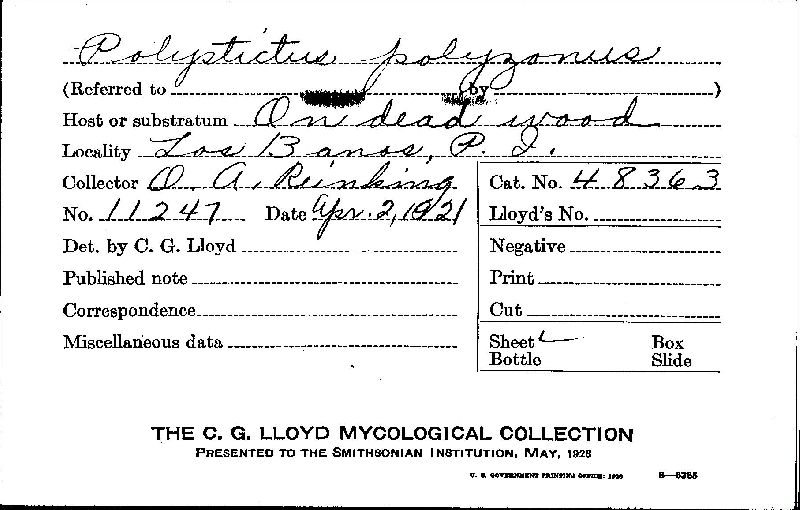 Polystictus polyzonus
(Referred to by )
Host or substratum On dead wood
Locality Los Banos, P. I.
Collector O. A. Reinking Cat. No. 48363
No. 11247 Date Apr. 2, 1921 Lloyd's No.
Det. by C. G. Lloyd Negative
Published note Print
Correspondence Cut
Miscellaneous data Sheet ✓ Box
Bottle Slide
THE C. G. LLOYD MYCOLOGICAL COLLECTION
PRESENTED TO THE SMITHSONIAN INSTITUTION, MAY, 1928
U. S. GOVERNMENT PRINTING OFFICE: 1928